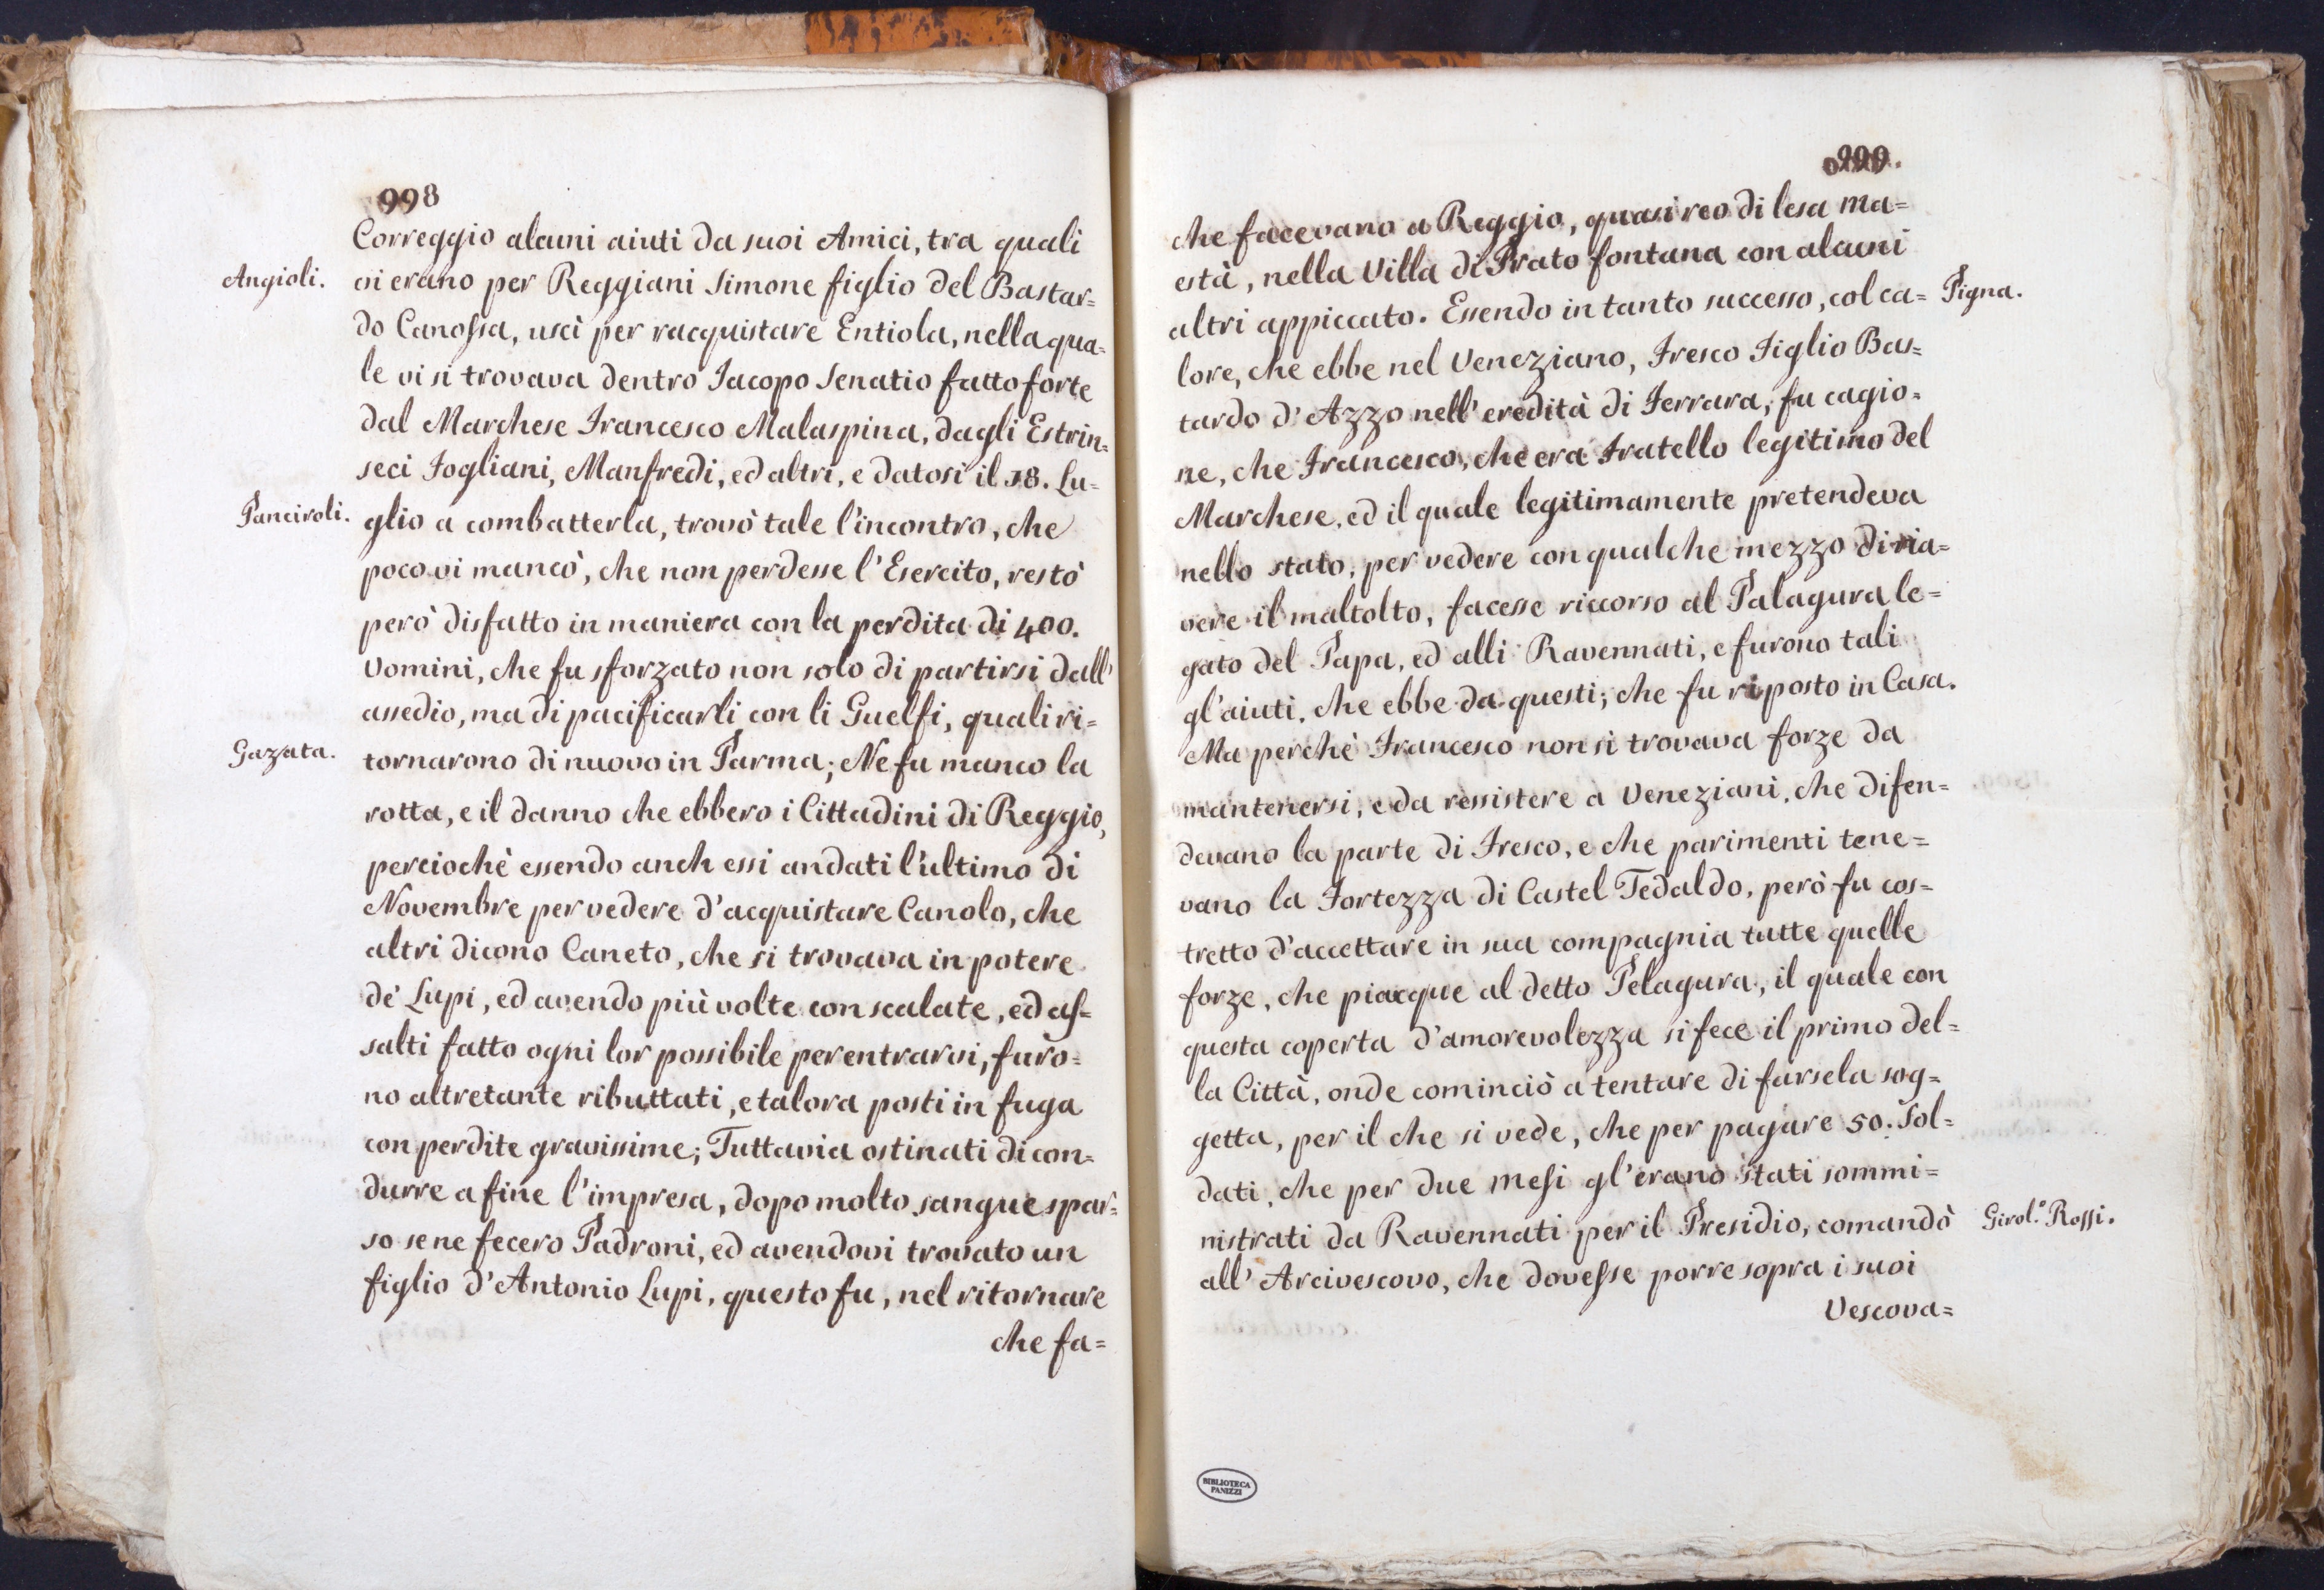 998
Correggio alcuni aiuti da suoi Amici, tra quali
Angioli.
vi erano per Reggiani Simone figlio del Bastar=
do Canossa, uscì per racquistare Entiola, nella qua=
le vi si trovava dentro Iacopo Senatio fatto forte
dal Marchese Francesco Malaspina, dagli Estrin=
seci Fogliani, Manfredi, ed altri, e datosi il 18. Lu=
Panciroli.
glio a combatterla, trovò tale l'incontro, che
poco vi mancò, che non perdesse l'Esercito, restò
però disfatto in maniera con la perdita di 400.
Uomini, che fu sforzato non solo di partirsi dall'
assedio, ma di pacificarli con li Guelfi, quali ri=
Gazata.
tornarono di nuovo in Parma; Ne fu manco la
rotta, e il danno che ebbero i Cittadini di Reggio,
perciochè essendo anch essi andati l'ultimo di
Novembre per vedere d'acquistare Canolo, che
altri dicono Caneto, che si trovava in potere
de' Lupi, ed avendo più volte con scalate, ed as=
salti fatto ogni lor possibile per entrarvi, furo=
no altretante ributtati, e talora posti in fuga
con perdite gravissime; Tuttavia ostinati di con=
durre a fine l'impresa, dopo molto sangue spar=
so se ne fecero Padroni, ed avendovi trovato un
figlio d'Antonio Lupi, questo fu, nel ritornare
che fa=
999.
che facevano a Reggio, quasi reo di lesa ma=
està, nella Villa di Prato fontana con alcuni
altri appiccato. Essendo in tanto successo, col ca=
Pigna.
lore, che ebbe nel Veneziano, Fresco Figlio Bas=
tardo d'Azzo nell'eredità di Ferrara, fu cagio=
ne, che Francesco, che era Fratello legitimo del
Marchese, ed il quale legitimamente pretendeva
nello stato, per vedere con qualche mezzo di ria=
vere il maltolto, facesse riccorso al Palagura le=
gato del Papa, ed alli Ravennati, e furono tali
gl'aiuti, che ebbe da questi; che fu riposto in Casa.
Ma perchè Francesco non si trovava forze da
mantenersi, e da ressistere à Veneziani, che difen=
devano la parte di Fresco, e che parimenti tene=
vano la Fortezza di Castel Tedaldo, però fu cos=
tretto d'accettare in sua compagnia tutte quelle
forze, che piacque al detto Pelagura, il quale con
questa coperta d'amorevolezza si fece il primo del=
la Città, onde cominciò a tentare di farsela sog=
getta, per il che si vede, che per pagare 50. Sol=
dati, che per due mesi gl'erano stati sommi=
nistrati da Ravennati per il Presidio, comandò
Girol.º Rossi.
all'Arcivescovo, che dovesse porre sopra i suoi
Vescova=
BIBLIOTECA
PANIZZI